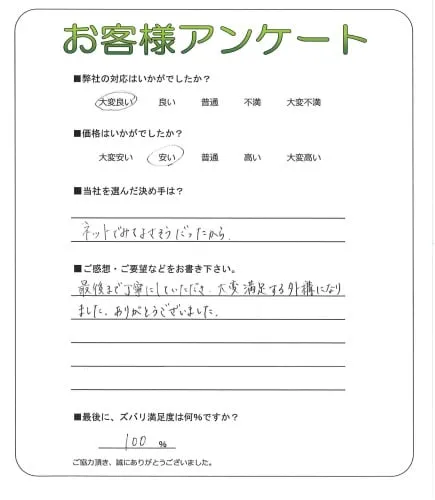 お客様アンケート
■弊社の対応はいかがでしたか？
大変良い 良い 普通 不満 大変不満
■価格はいかがでしたか？
大変安い 安い 普通 高い 大変高い
■当社を選んだ決め手は？
ネットでみてよさそうだったから.
■ご感想・ご要望などをお書き下さい。
最後まで丁寧にしていただき、大変満足する外構になり
ました。ありがとうございました。
■最後に、ズバリ満足度は何％ですか？
100 ％
ご協力頂き、誠にありがとうございました。